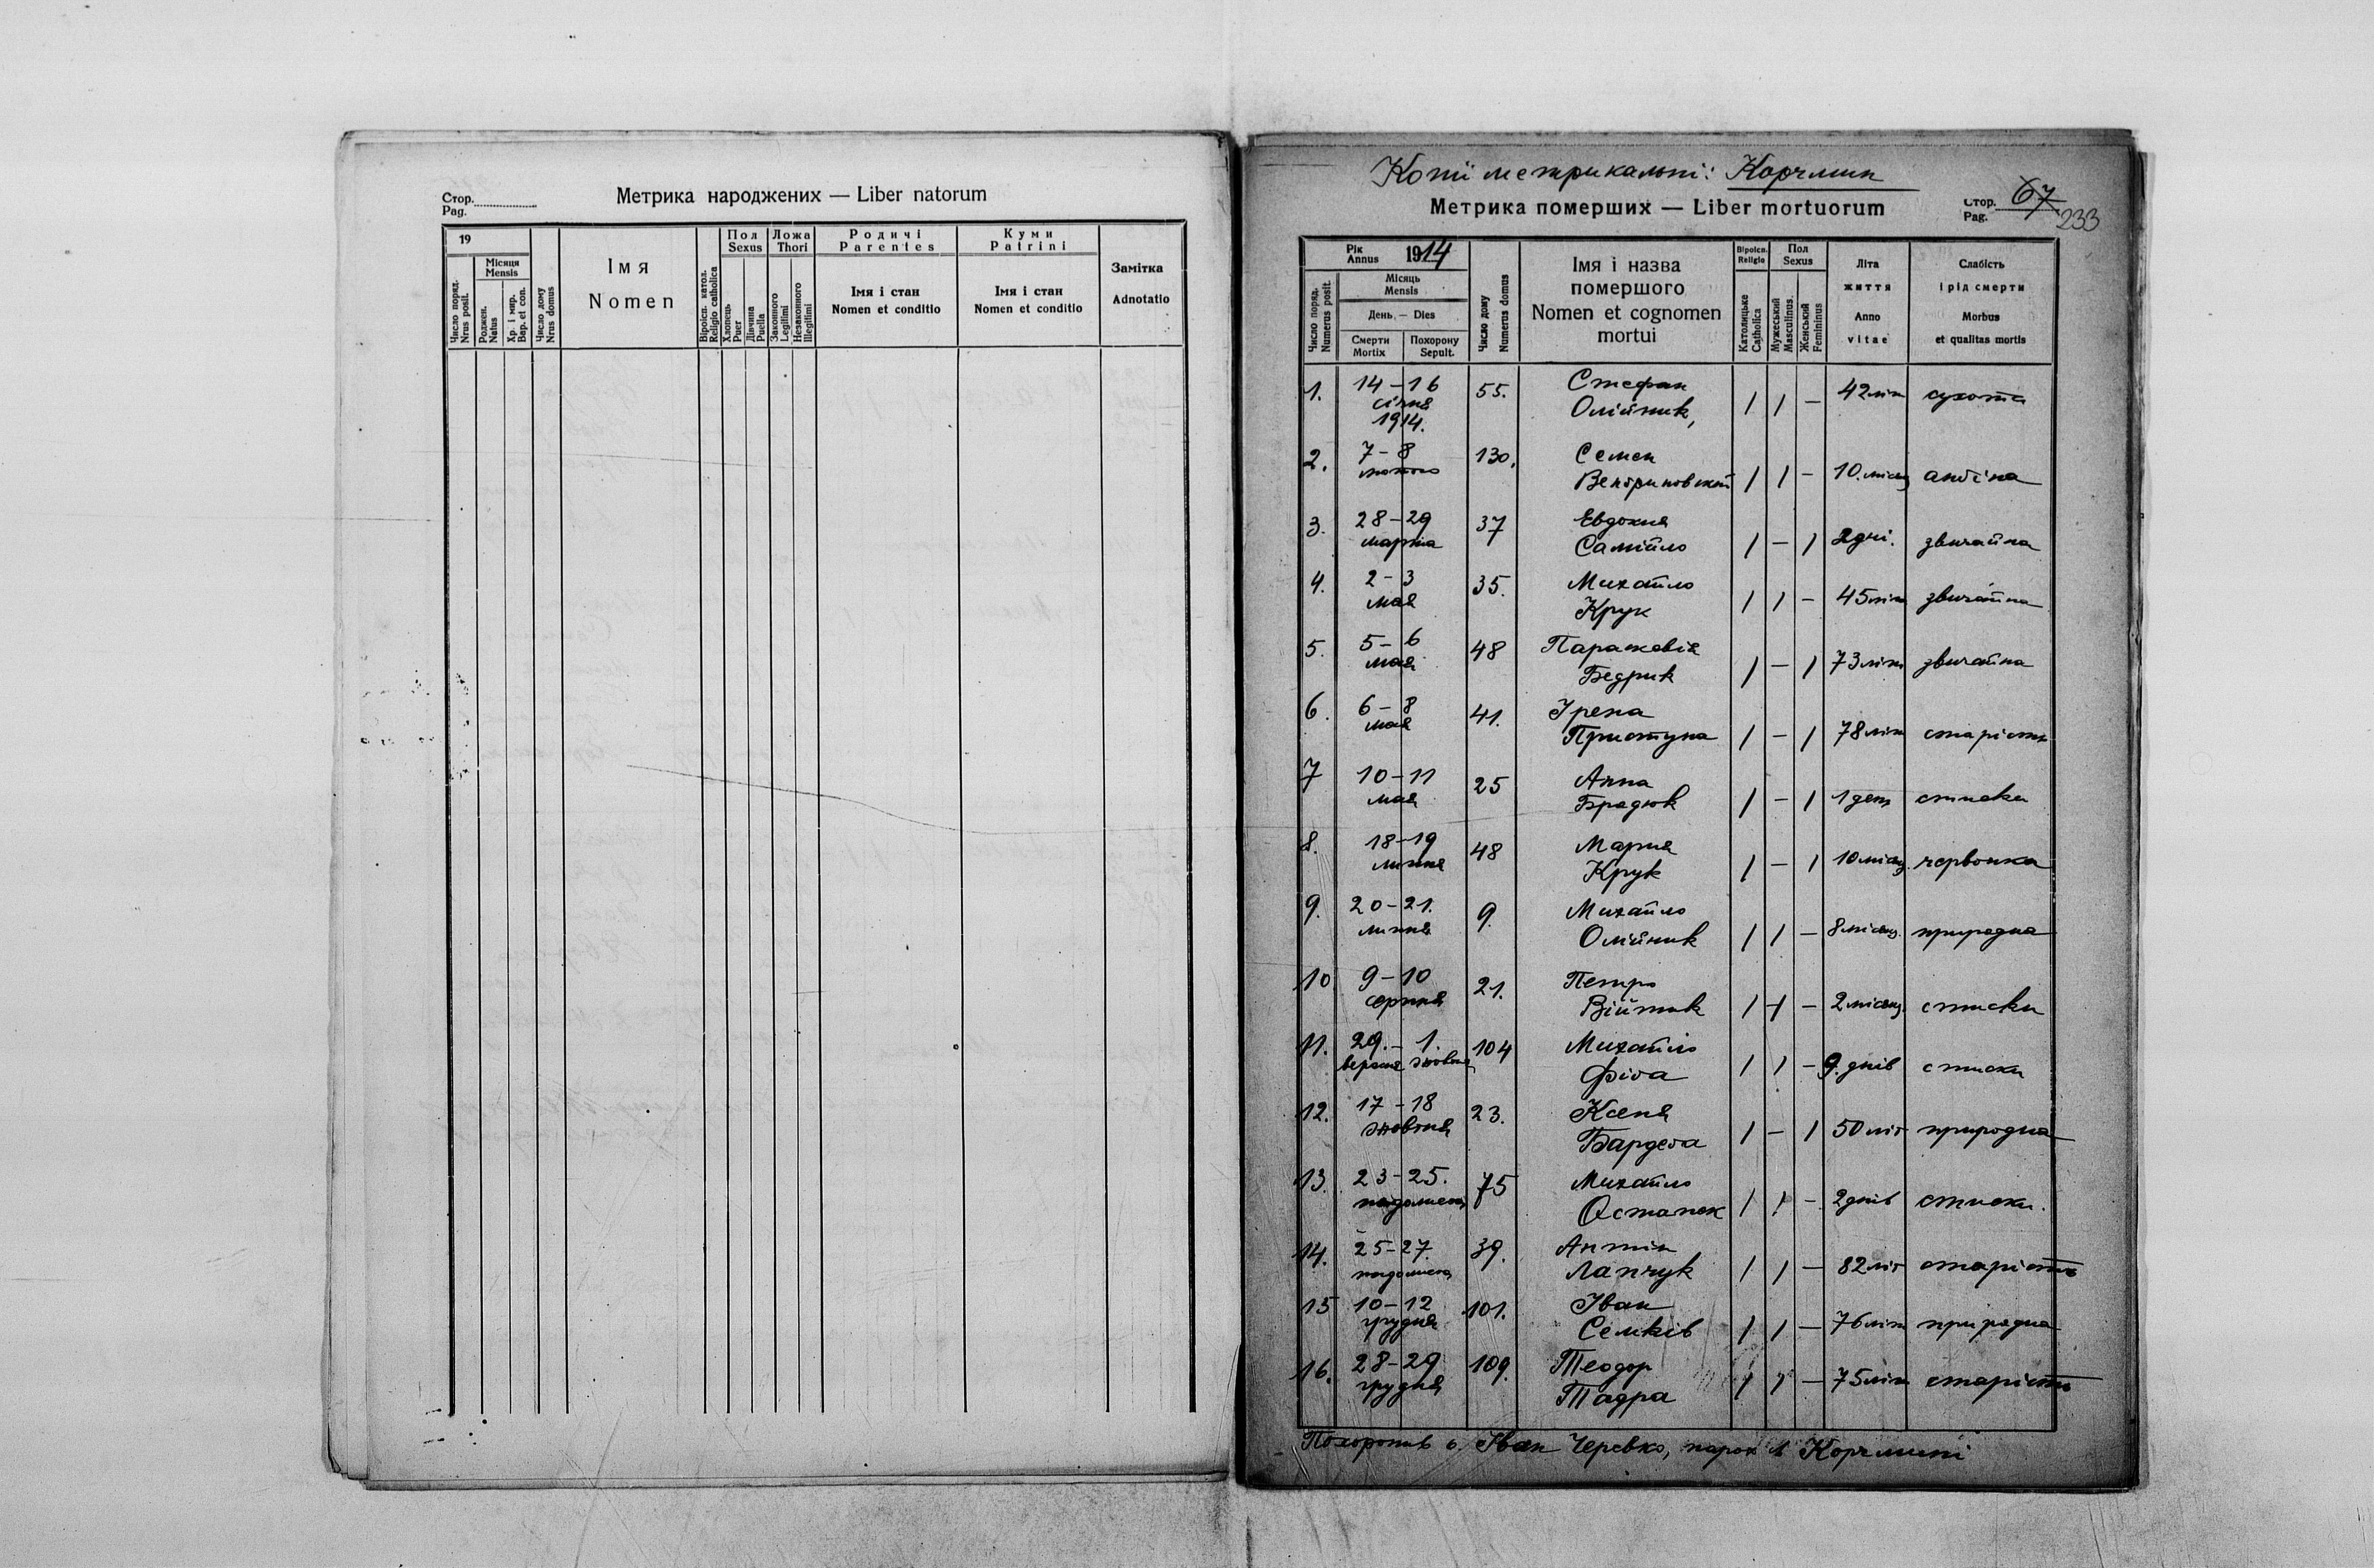 Стор.
Pag.
Метрика народжених — Liber natorum
19
Число поряд.
Nrus posit.
Місяця
Mensis
Роджен.
Natus
Хр. і мир.
Bap. et con.
Число дому
Nrus domus
Імя
Nomen
Віроісп. катол.
Religio catholica
Пол
Sexus
Хлопець
Puer
Дівчина
Puella
Ложа
Thori
Законного
Legitimi
Незаконного
Illegitimi
Родичі
Parentes
Імя і стан
Nomen et conditio
Куми
Patrini
Імя і стан
Nomen et conditio
Замітка
Adnotatio
Копії метрикальні: Корчмин
Метрика померших — Liber mortuorum
Стор.
Pag.
67
233
Рік
Annus 1914
Число поряд.
Numerus posit.
Місяць
Mensis
День — Dies
Смерти
Mortix
Похорону
Sepult.
Число дому
Numerus domus
Імя і назва
помершого
Nomen et cognomen
mortui
Віроісп.
Religio
Католицьке
Catholica
Пол
Sexus
Мужеський
Masculinus.
Женський
Femininus
Літа
життя
Anno
vitae
Слабість
і рід смерти
Morbus
et qualitas mortis
1. 14 – 16 55. Стефан
січня Олійник, / / – 42 літ сухота
1914.
2. 7 – 8 130. Семен
лютого / / – 10. місяц ангіна
3. 28 – 29 37 Евдокия
марта Самійло / – / 2 дні. звичайна
4. 2 – 3 35. Михайло
мая Крук / / – 45 літ звичайна
5. 5 – 6 48 Параскевія
мая Бедрик / – / 73 літ звичайна
6. 6 – 8 41. Ірена
мая Приступа / – / 78 літ старість
7 10 – 11 25 Анна
мая Брадюк / – / 1 ден стиски
8. 18 – 19 48 Мария
липня Крук / – / 10 місяц. червонка
9. 20 – 21. 9. Михайло
липня Олійник / / – 8 місяц. природна
10 9 – 10 21. Петро
серпня Війтик / / – 2 місяц. стиски
11. 29. – 1. 104 Михайло
вересня жовтня Фіґа / / – 9. днів стиски
12. 17 – 18 23. Ксеня
жовтня Бардега / – / 50 літ природна
13. 23 – 25. 75 Михайло
падолиста Остапюк / / – 2 днів стиски.
14. 25 – 27. 39. Антін
падолиста Лапчук / / – 82 літ старість
15 10 – 12 101. Іван
грудня Семків / / – 76 літ природна
16. 28 – 29 109. Теодор
грудня Тадра / / – 75 літ старість
Похоронив о. Іван Черевко, парох в Корчмині